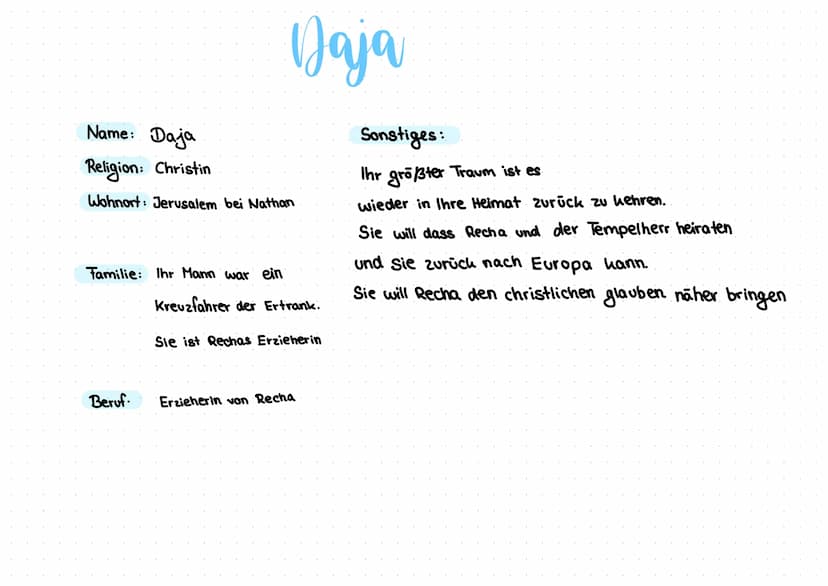 Daja
Name: Daja
Religion: Christin
Wohnort: Jerusalem bei Nathan
Familie: Ihr Mann war ein
Kreuzfahrer der Ertrank.
Sie ist Rechas Erzieherin
Beruf: Erzieherin von Recha
Sonstiges:
Ihr größter Traum ist es
wieder in Ihre Heimat zurück zu kehren.
Sie will dass Recha und der Tempelherr heiraten
und sie zurück nach Europa kann.
Sie will Recha den christlichen glauben näher bringen